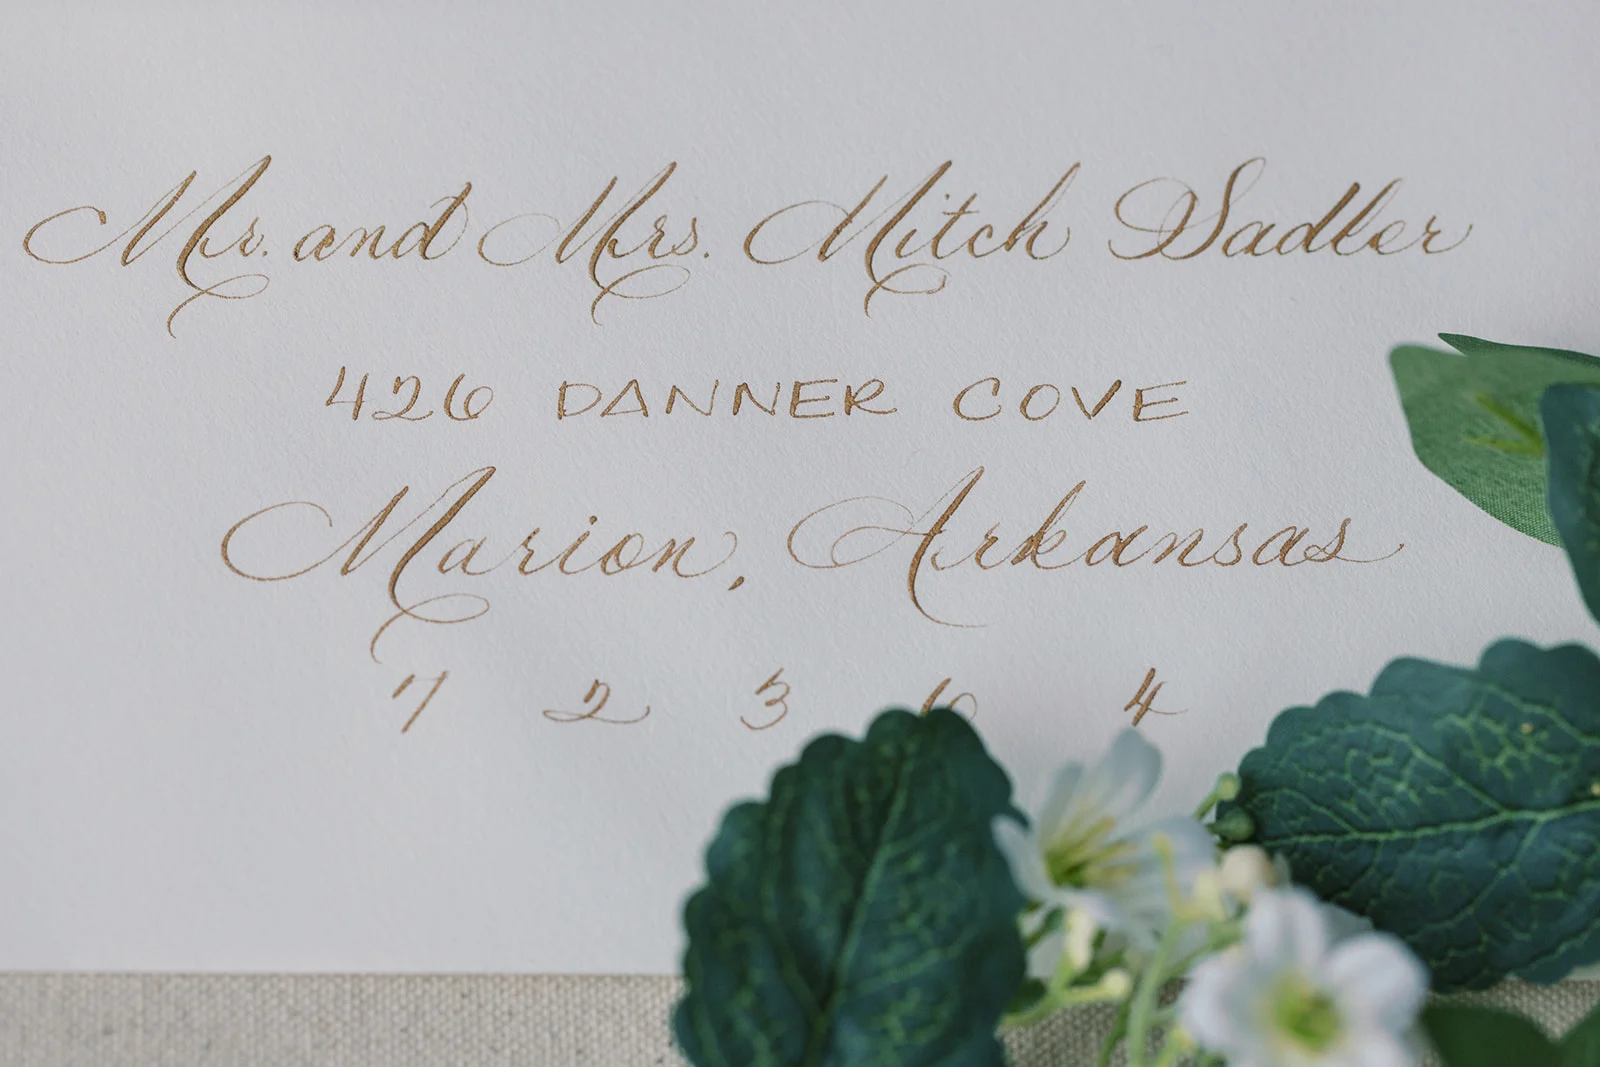 Mr. and Mrs. Mitch Sadler
426 DANNER COVE
Marion, Arkansas
7 2 3 6 4